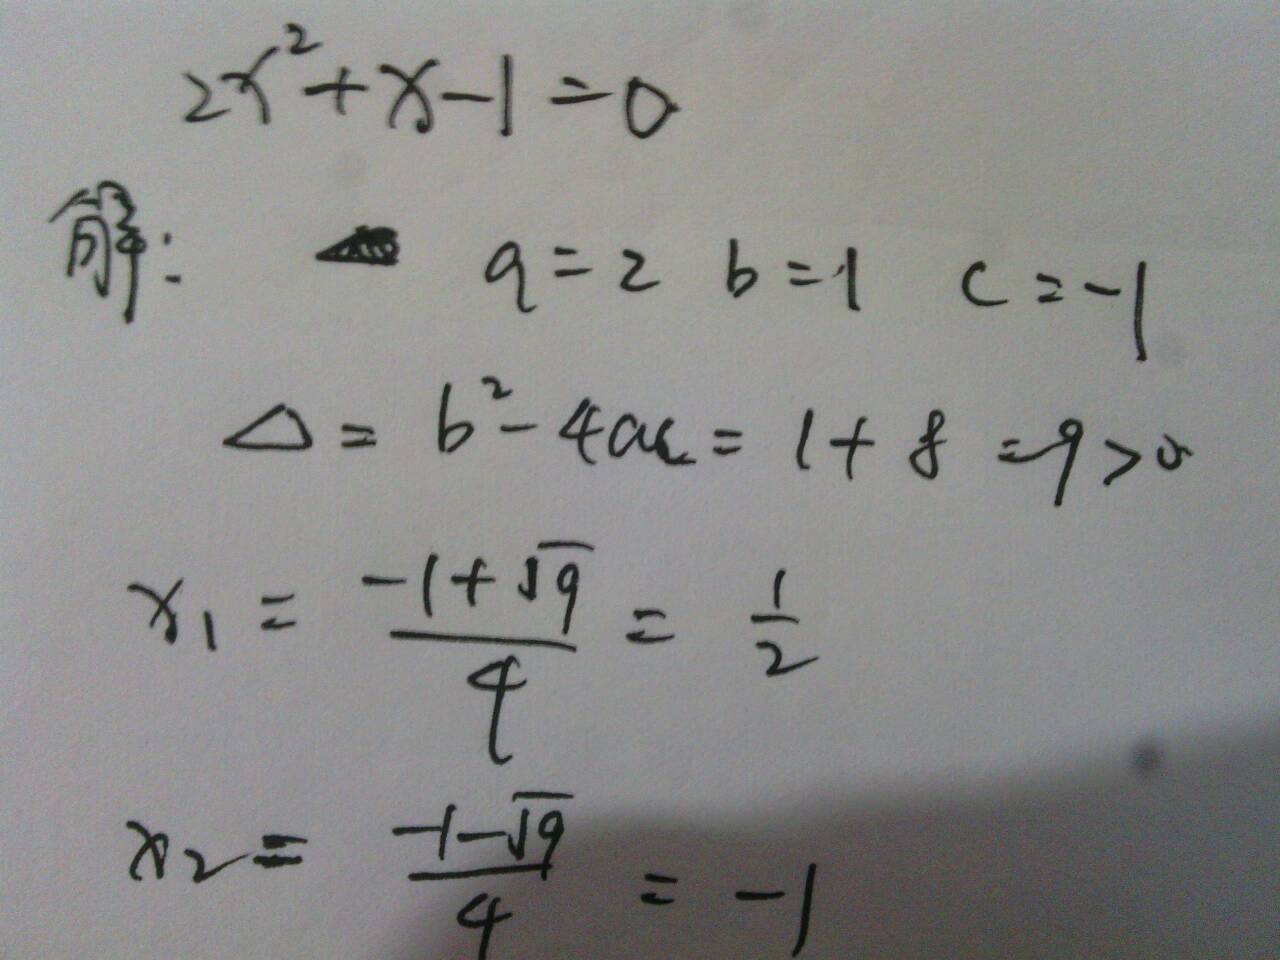 2x²+x-1=0
解: a=2 b=1 c=-1
△=b²-4ac=1+8=9>0
x₁=(-1+√9)/4=1/2
x₂=(-1-√9)/4=-1